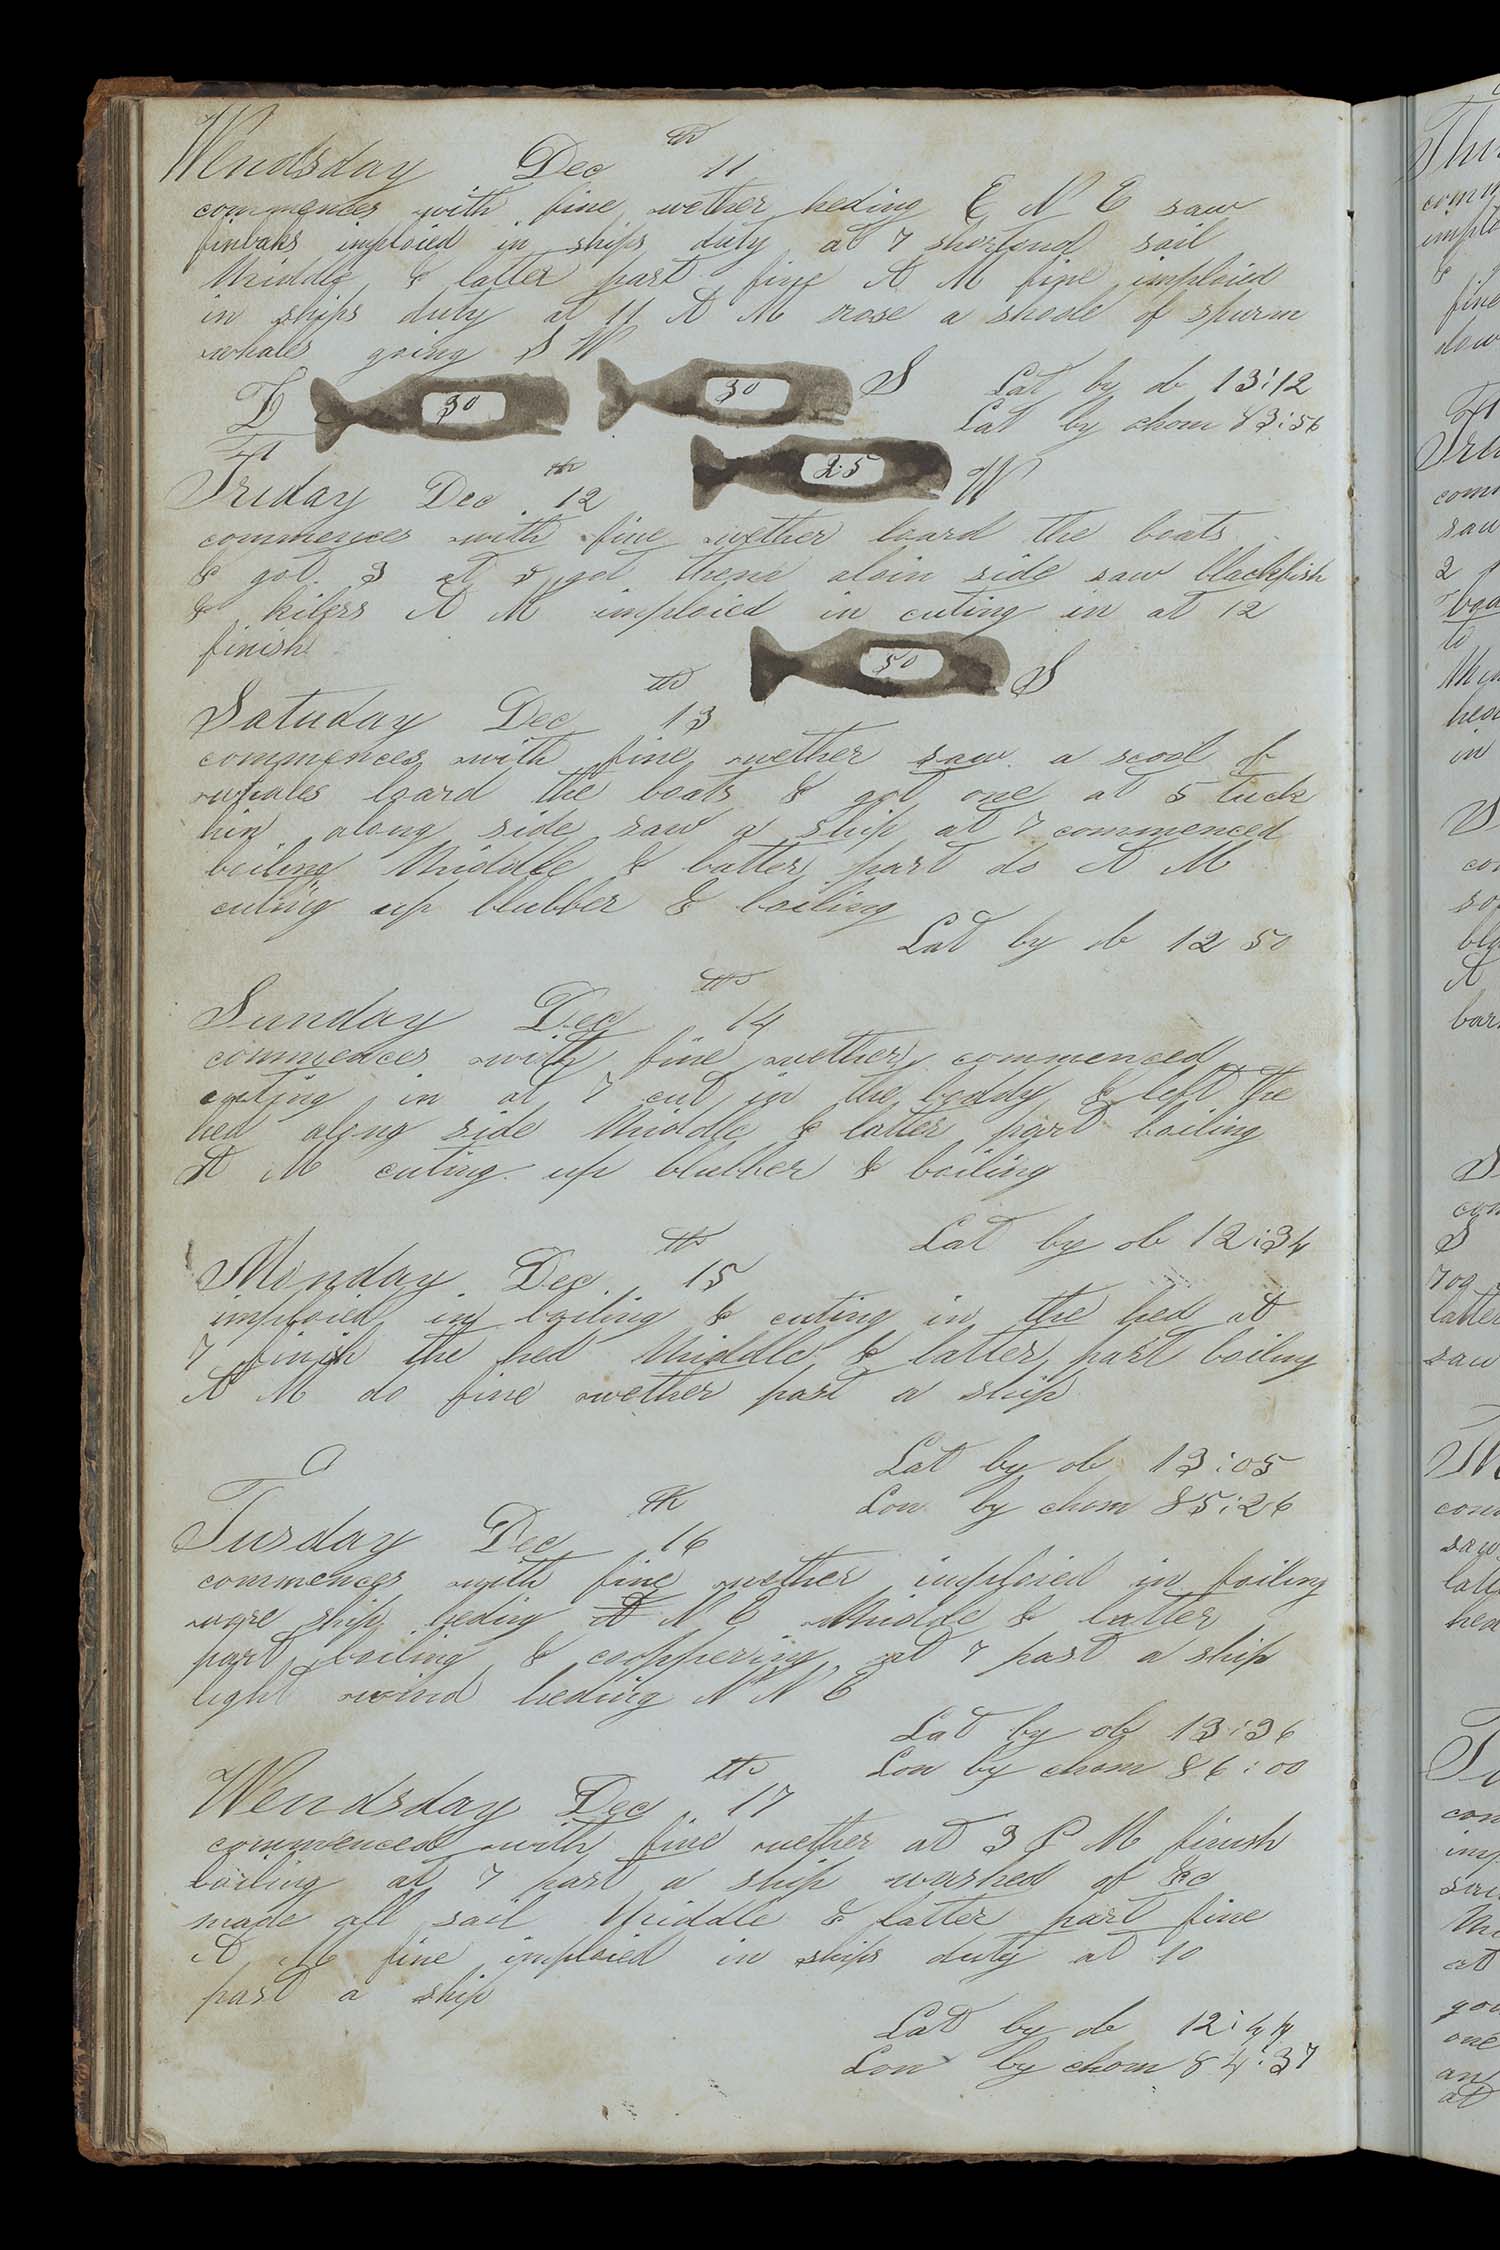 Wendsday Dec 11th
commences with fine wether heding E N E saw
finbaks imploied in ships duty at 7 shortend sail
Middle & latter part fine A M fine imploied
in ships duty at 11 A M rose a shoole of spurm
whales going S W
30
30 S Lat by ob 13:12
Lat by chom 83:56
25 W
Friday Dec 12th
commences with fine wether loard the boats
& got 3 at 5 got them aloin side saw blackfish
& kilers A M imploied in cuting in at 12
finish
50 S
Satuday Dec 13th
commences with fine wether saw a scool of
whales loard the boats & got one at 5 tuck
him along side saw a ship at 7 commenced
boiling Middle & latter part do A M
cuting up blubber & boiling
Lat by ob 12 50
Sunday Dec 14th
commences with fine wether commenced
cuting in at 7 cut in the boddy & left the
hed along side Middle & latter part boiling
A M cuting up blubber & boiling
Lat by ob 12:34
Monday Dec 15th
imploied in boiling & cuting in the hed at
7 finish the hed Middle & latter part boiling
A M do fine wether past a ship
Lat by ob 13:05
Lon by chom 85:26
Tusday Dec 16th
commences with fine wether imploied in boiling
ware ship heding N E Middle & latter
part boiling & coppering at 7 past a ship
light wind heding N N E
Lat by ob 13:36
Lon by chom 86:00
Wendsday Dec 17th
commenced with fine wether at 3 P M finish
boiling at 7 past a ship washed of &c
made all sail Middle & latter part fine
A M fine imploied in ships duty at 10
past a ship
Lat by ob 12:44
Lon by chom 84:37